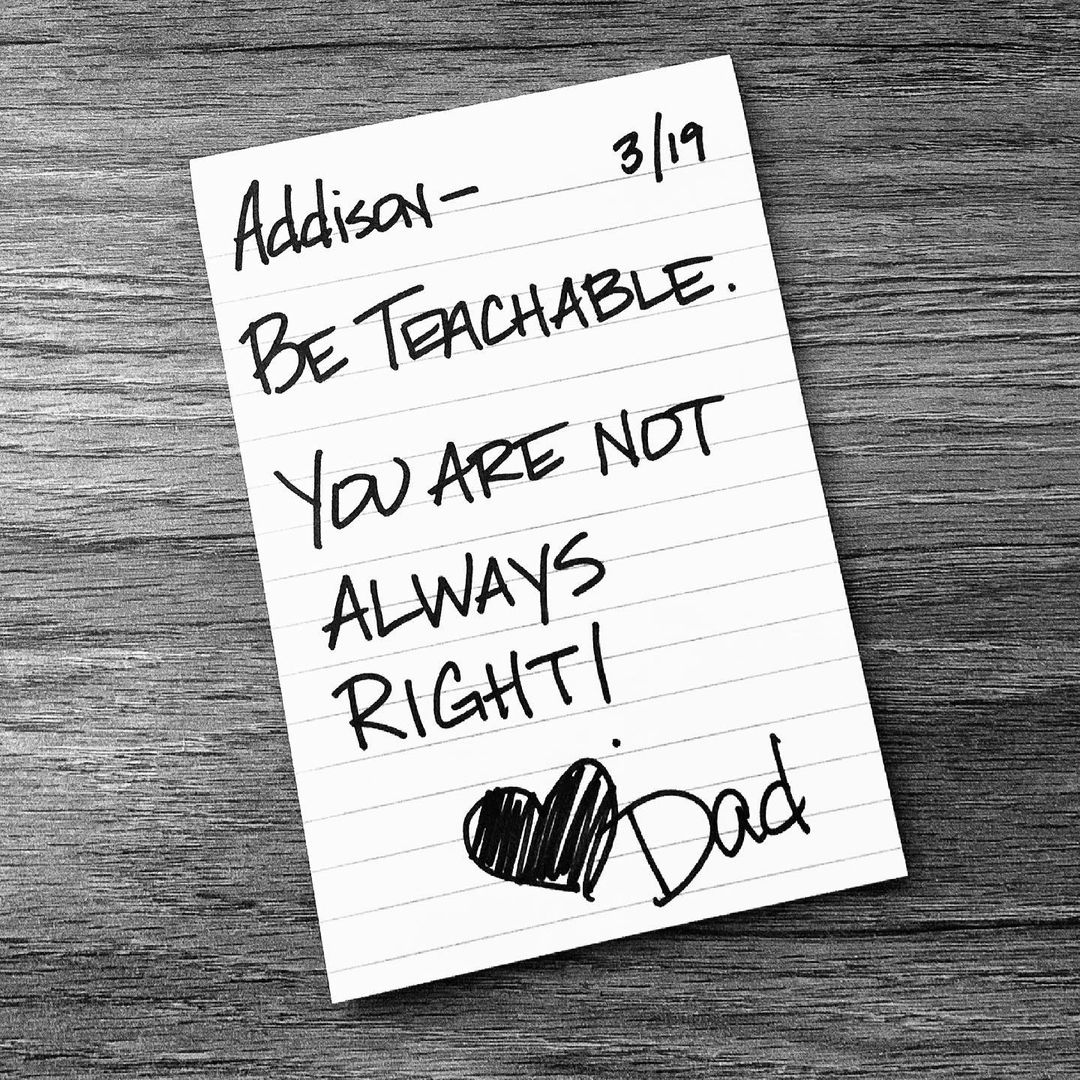 Addison— 3/19
BE TEACHABLE.
YOU ARE NOT
ALWAYS
RIGHT!
Dad